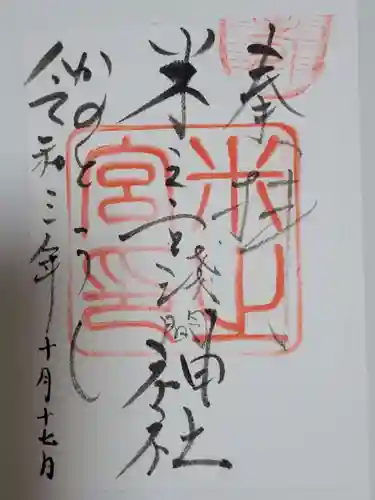 奉拝
米之宮浅間神社
かのとうし
令和三年十月十七日
米山宮印